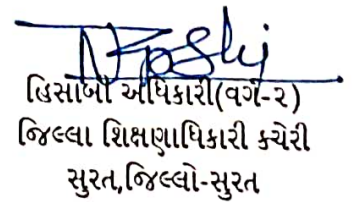 હિસાબી અધિકારી(વર્ગ-૨)
જિલ્લા શિક્ષણાધિકારી કચેરી
સુરત,જિલ્લો-સુરત